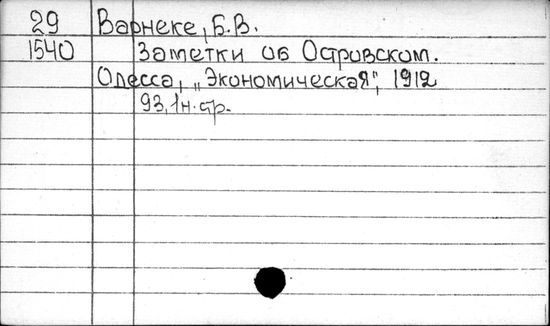 29 Варнеке, Б.В.
1540 Заметки об Островском.
Одесса, „Экономическая", 1912
93, 1 н. стр.